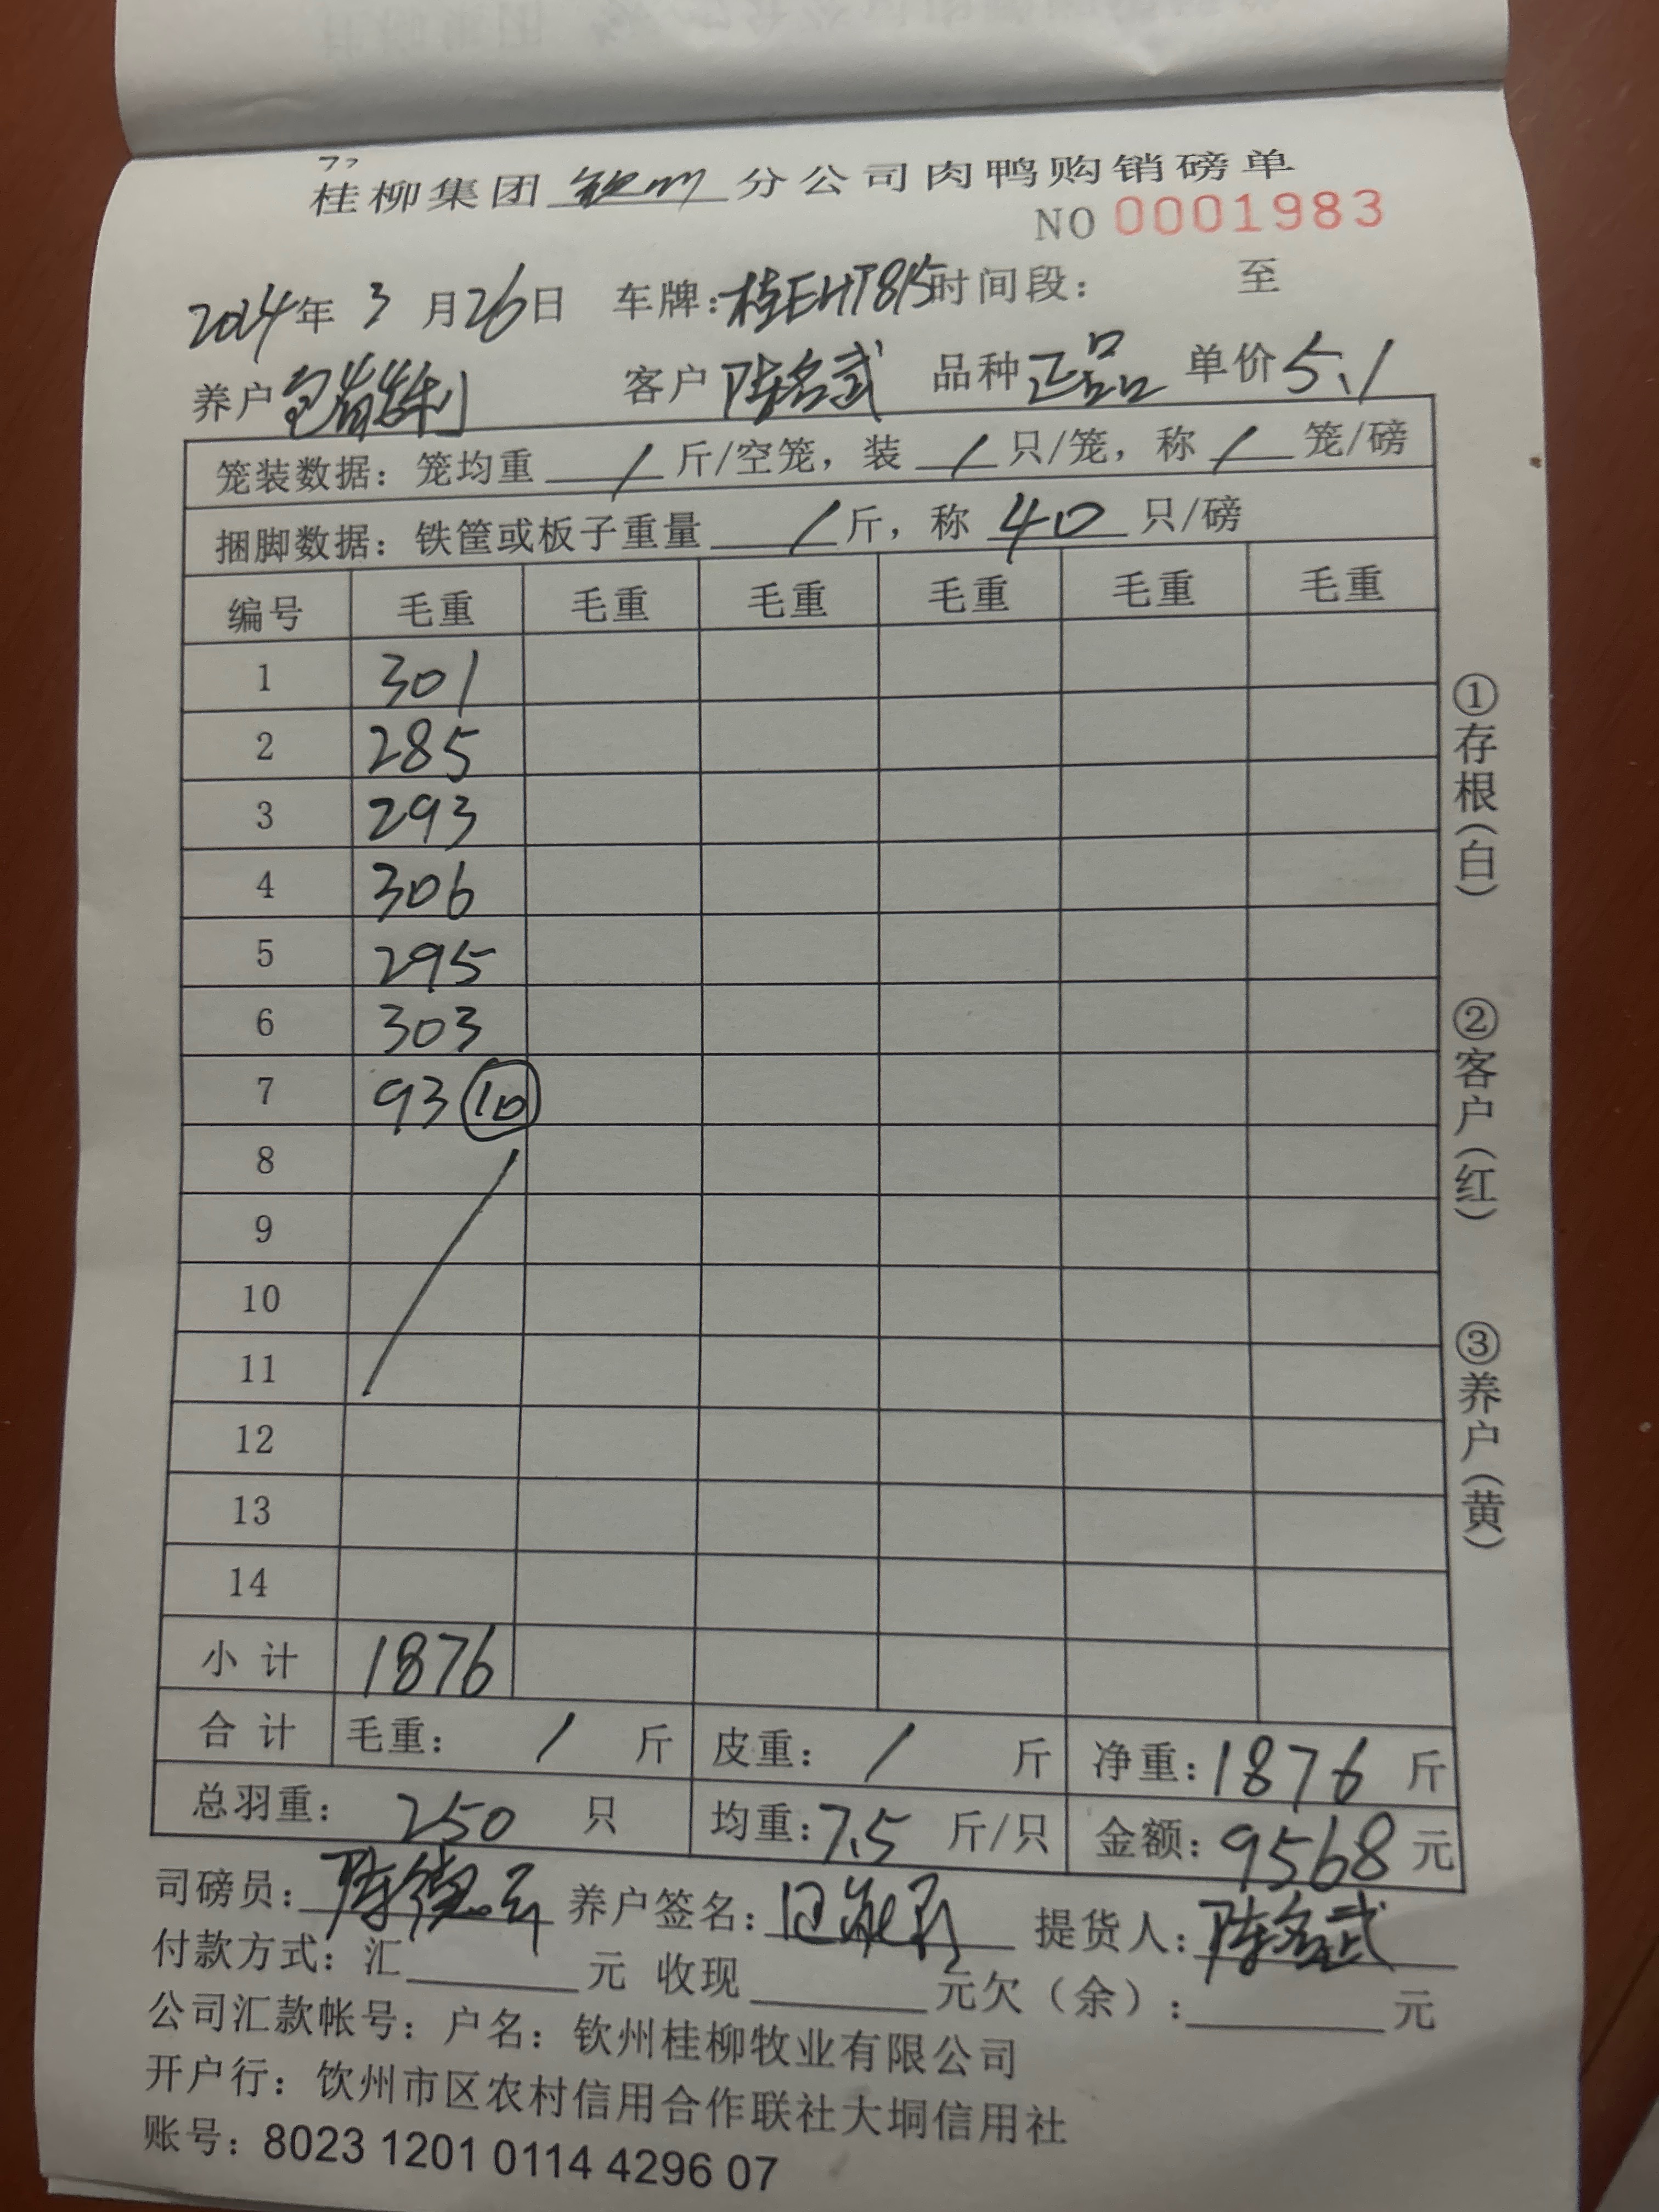 桂柳集团 钦州 分公司肉鸭购销磅单
NO 0001983
2024年 3 月 26日 车牌:桂EHT815 时间段: 至
养户 客户 陈名武 品种 正品 单价 5.1
笼装数据: 笼均重 / 斤/空笼, 装 / 只/笼, 称 / 笼/磅
捆脚数据: 铁筐或板子重量 / 斤, 称 40 只/磅
编号 毛重 毛重 毛重 毛重 毛重 毛重
1 301
2 285
3 293
4 306
5 295
6 303
7 93 ⑩
8
9
10
11
12
13
14
小计 1876
合计 毛重: / 斤 皮重: / 斤 净重: 1876 斤
总羽重: 250 只 均重: 7.5 斤/只 金额: 9568 元
司磅员: 陈 养户签名: 提货人: 陈名武
付款方式: 汇 元 收现 元欠(余): 元
公司汇款帐号: 户名: 钦州桂柳牧业有限公司
开户行: 钦州市区农村信用合作联社大垌信用社
账号: 8023 1201 0114 4296 07
①存根(白) ②客户(红) ③养户(黄)